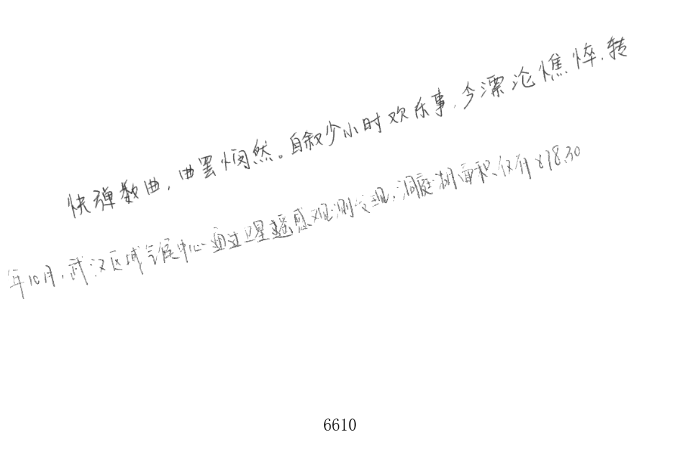 快弹数曲，曲罢悯然。自叙少小时欢乐事，今漂沦憔悴，转
年10月，武汉区域气候中心通过卫星遥感观测发现，洞庭湖面积仅有
6610